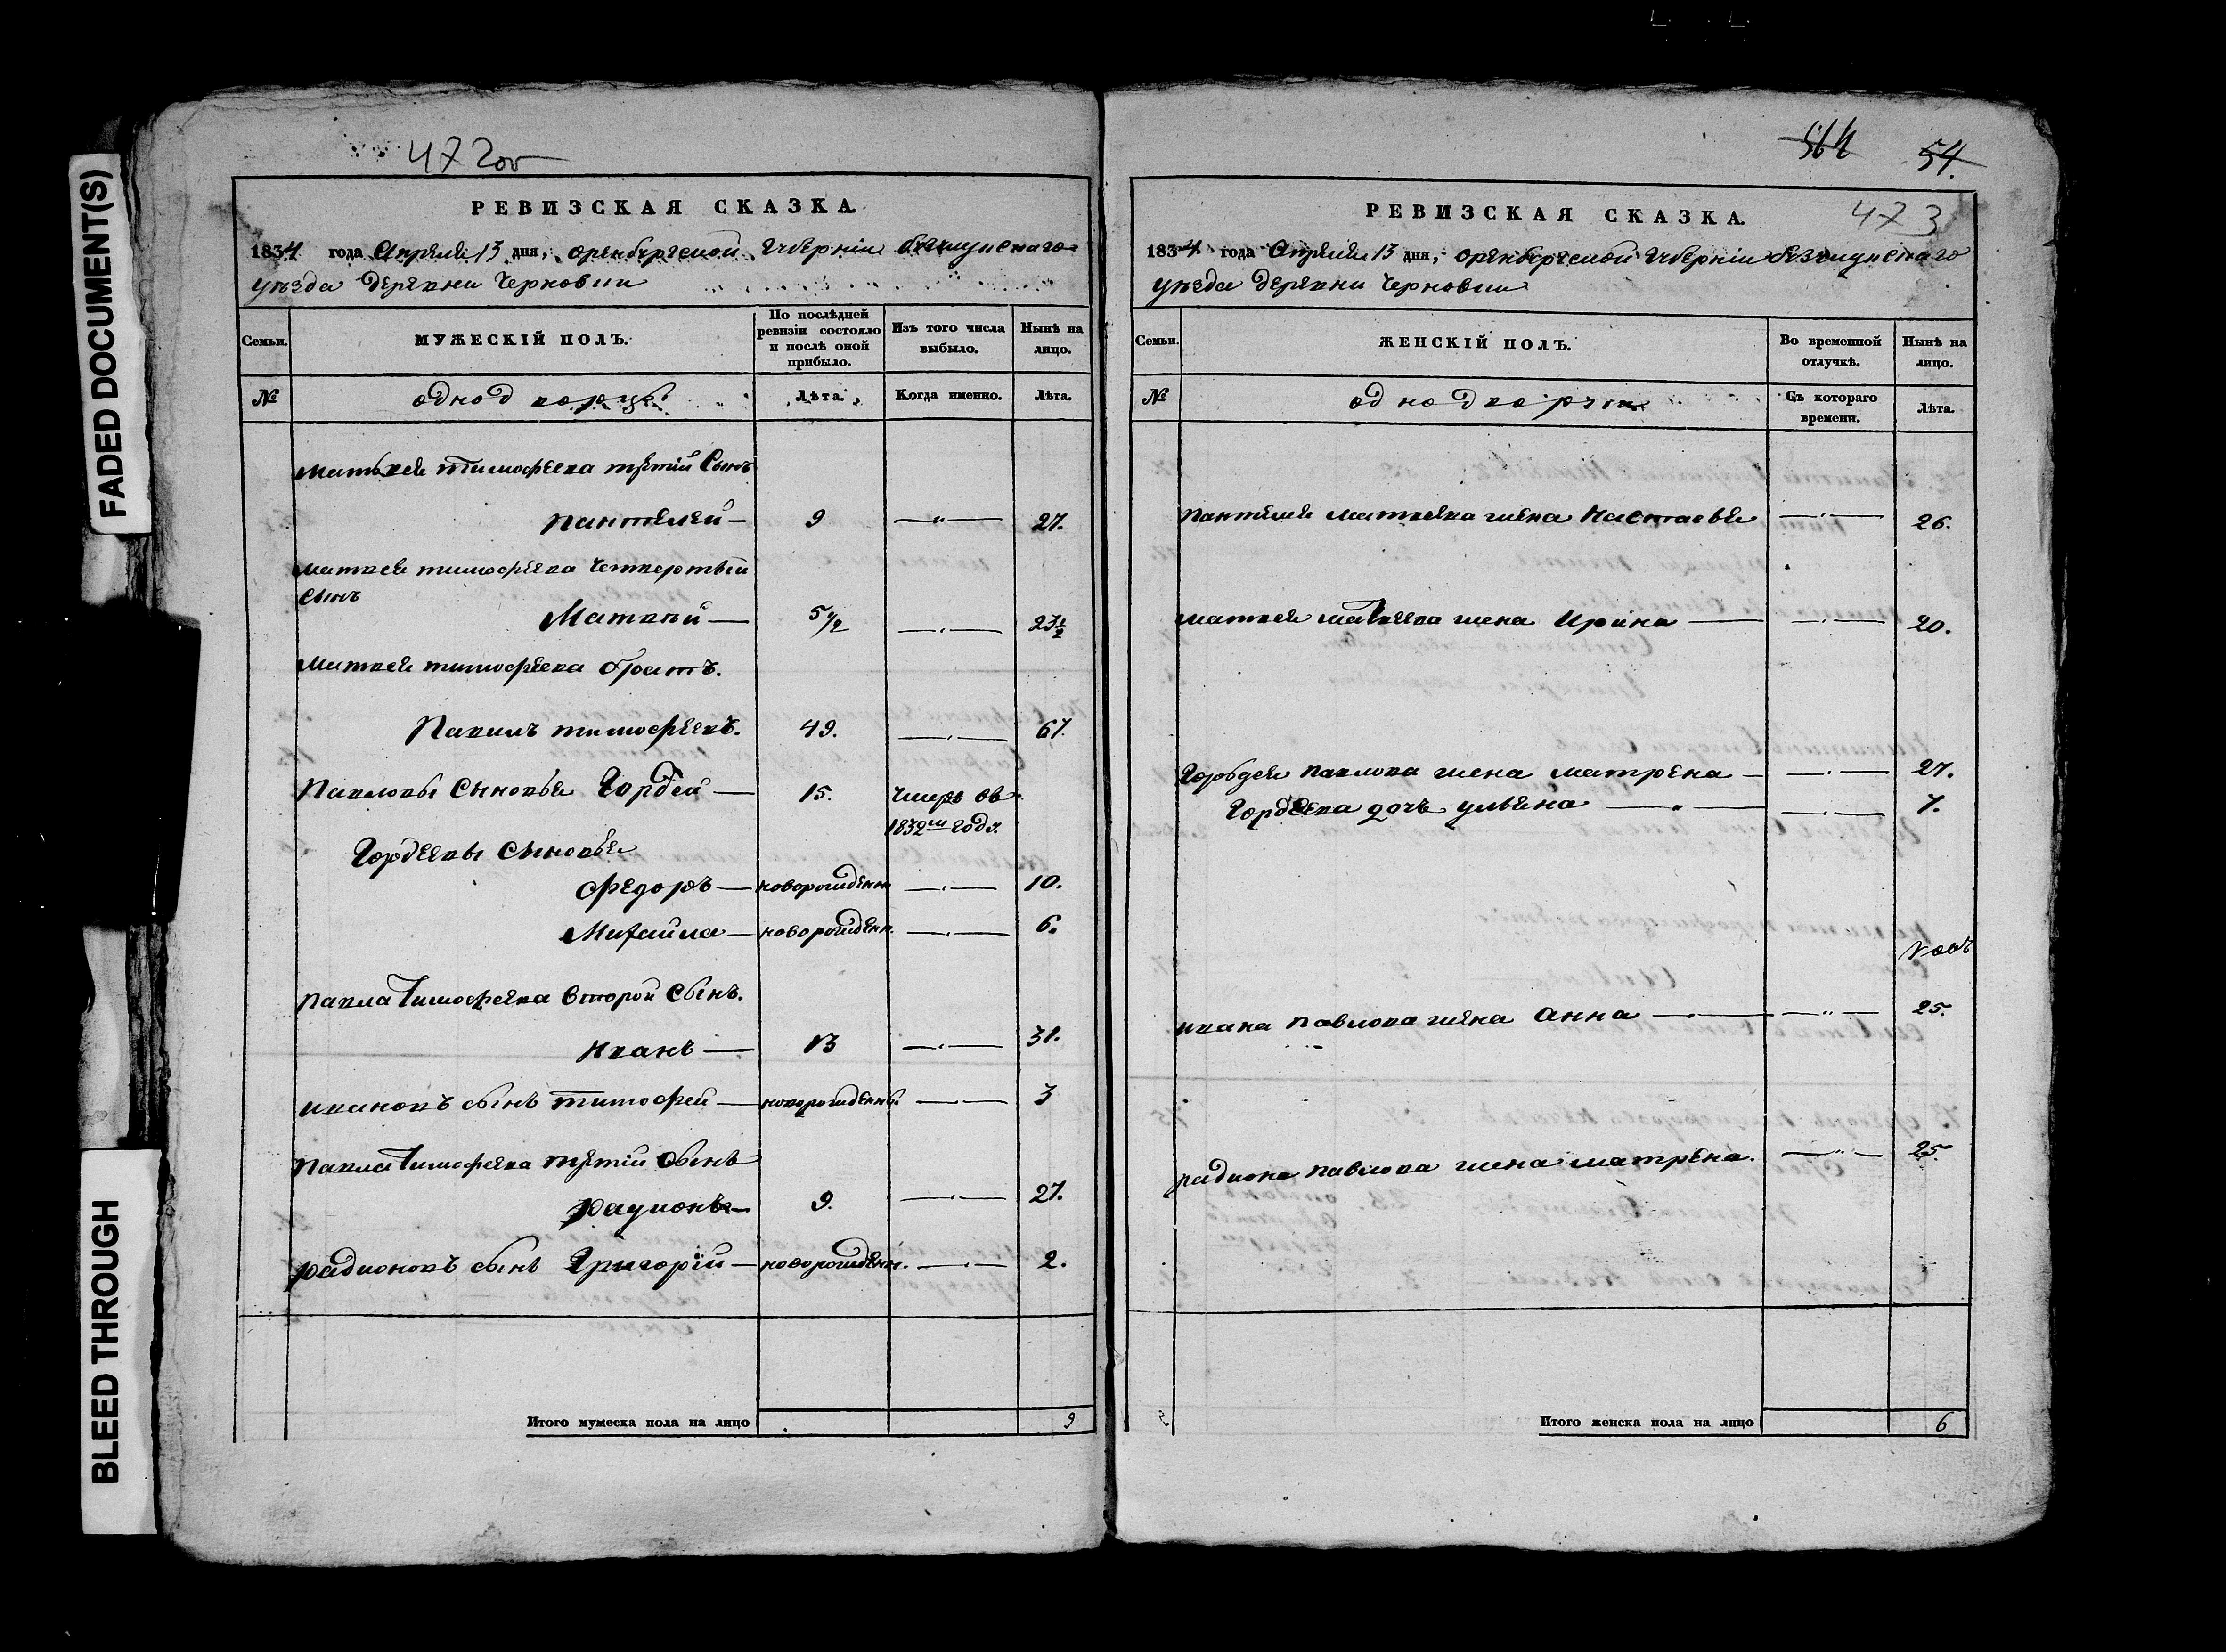 FADED DOCUMENT(S)
BLEED THROUGH
472об
РЕВИЗСКАЯ СКАЗКА.
1834 года Апреля 13 дня, оренбургской губернии
уезда деревни Черновки
Семьи. МУЖЕСКІЙ ПОЛЪ. По послѣдней ревизіи состояло и послѣ оной прибыло. Изъ того числа выбыло. Нынѣ на лицо.
№ однодворцы Лѣта. Когда именно. Лѣта.
Матвея тимофеева третій Сынъ
пантелей — 9 — 27.
матвея тимофеева четвертый
сынъ
Матвей — 5 1/2 — 23 1/2
Матвея тимофеева братъ.
Павилъ тимофеевъ. 49. — 67.
Павловы Сыновья Гордей — 15. Умеръ въ
1832м году.
Гордеевы Сыновья
Федоръ — новорожденны — 10.
Михайла — новорожденн. — 6.
павла Тимофеева второй сынъ.
Иванъ — 13 — 31.
ивановъ сынъ тимофей — новорожденны. — 3
павла Тимофеева третій сынъ
радионъ — 9. — 27.
радионовъ сынъ Григорій — новорожденн. — 2.
Итого мужеска пола на лицо 9
564 54.
473
РЕВИЗСКАЯ СКАЗКА.
1834 года Апреля 13 дня, оренбургской губернии
уезда деревни Черновки
Семьи. ЖЕНСКІЙ ПОЛЪ. Во временной отлучкѣ. Нынѣ на лицо.
№ однодворки Съ котораго времени. Лѣта.
пантелея матвеева жена Настасья — 26.
матвея матвеева жена Ирина — 20.
Гордея павлова жена матрена — 27.
Гордеева дочь ульяна — 7.
ивана павлова жена Анна — 25.
радиона павлова жена матрена. — 25.
Итого женска пола на лицо 6